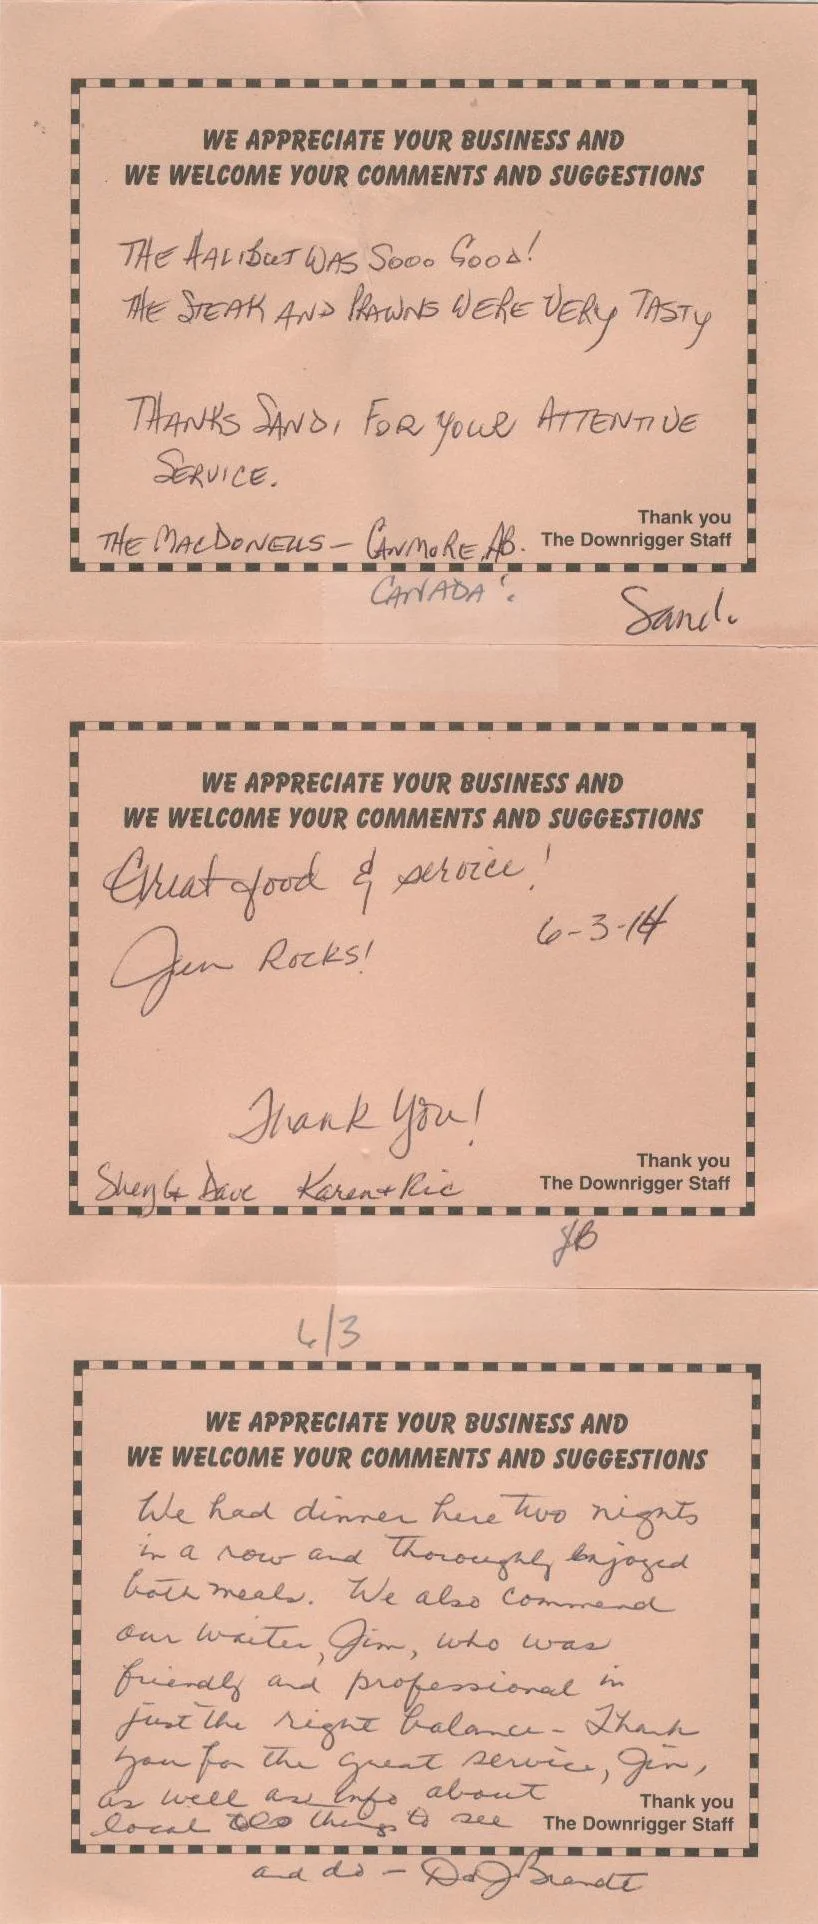 WE APPRECIATE YOUR BUSINESS AND
WE WELCOME YOUR COMMENTS AND SUGGESTIONS
THE HALIBUT WAS SOOO GOOD!
THE STEAK AND PRAWNS WERE VERY TASTY
THANKS SANDI FOR YOUR ATTENTIVE
SERVICE.
Thank you
THE MACDONELLS - CANMORE, AB.
The Downrigger Staff
CANADA!
Sandi
WE APPRECIATE YOUR BUSINESS AND
WE WELCOME YOUR COMMENTS AND SUGGESTIONS
Great food & service!
6-3-14
Jen ROCKS!
Thank You!
Thank you
Dave Karen + Ric
The Downrigger Staff
JB
6/3
WE APPRECIATE YOUR BUSINESS AND
WE WELCOME YOUR COMMENTS AND SUGGESTIONS
We had dinner here two nights
in a row and thoroughly enjoyed
both meals. We also commend
our waiter, Jim, who was
friendly and professional in
just the right balance - Thank
you for the great service, Jim,
as well as info about
Thank you
local things to see
The Downrigger Staff
and do - D & J Brandt